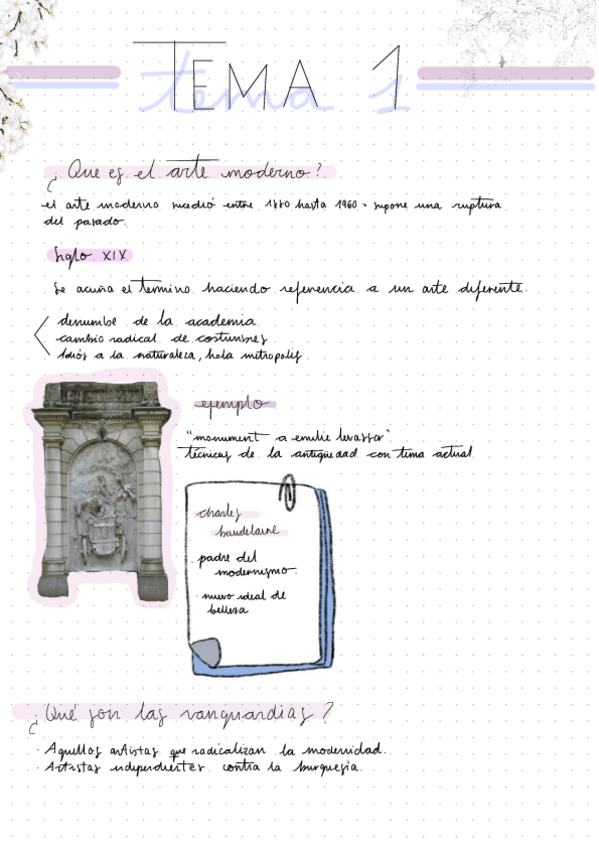 TEMA 1
tema 1
¿Que es el arte moderno?
el arte moderno sucedió entre 1880 hasta 1960 · supone una ruptura
del pasado.
Siglo XIX
Se acuña el termino haciendo referencia a un arte diferente.
derrumbe de la academia
cambio radical de costumbres
Adiós a la naturaleza, hola metropolis
ejemplo
"monument a emilie levassor"
técnicas de la antigüedad con tema actual
charles
baudelaire
· padre del
modernismo.
· nuevo ideal de
belleza
¿Qué son las vanguardias?
· Aquellos artistas que radicalizan la modernidad.
· Artistas independientes contra la burguesia.